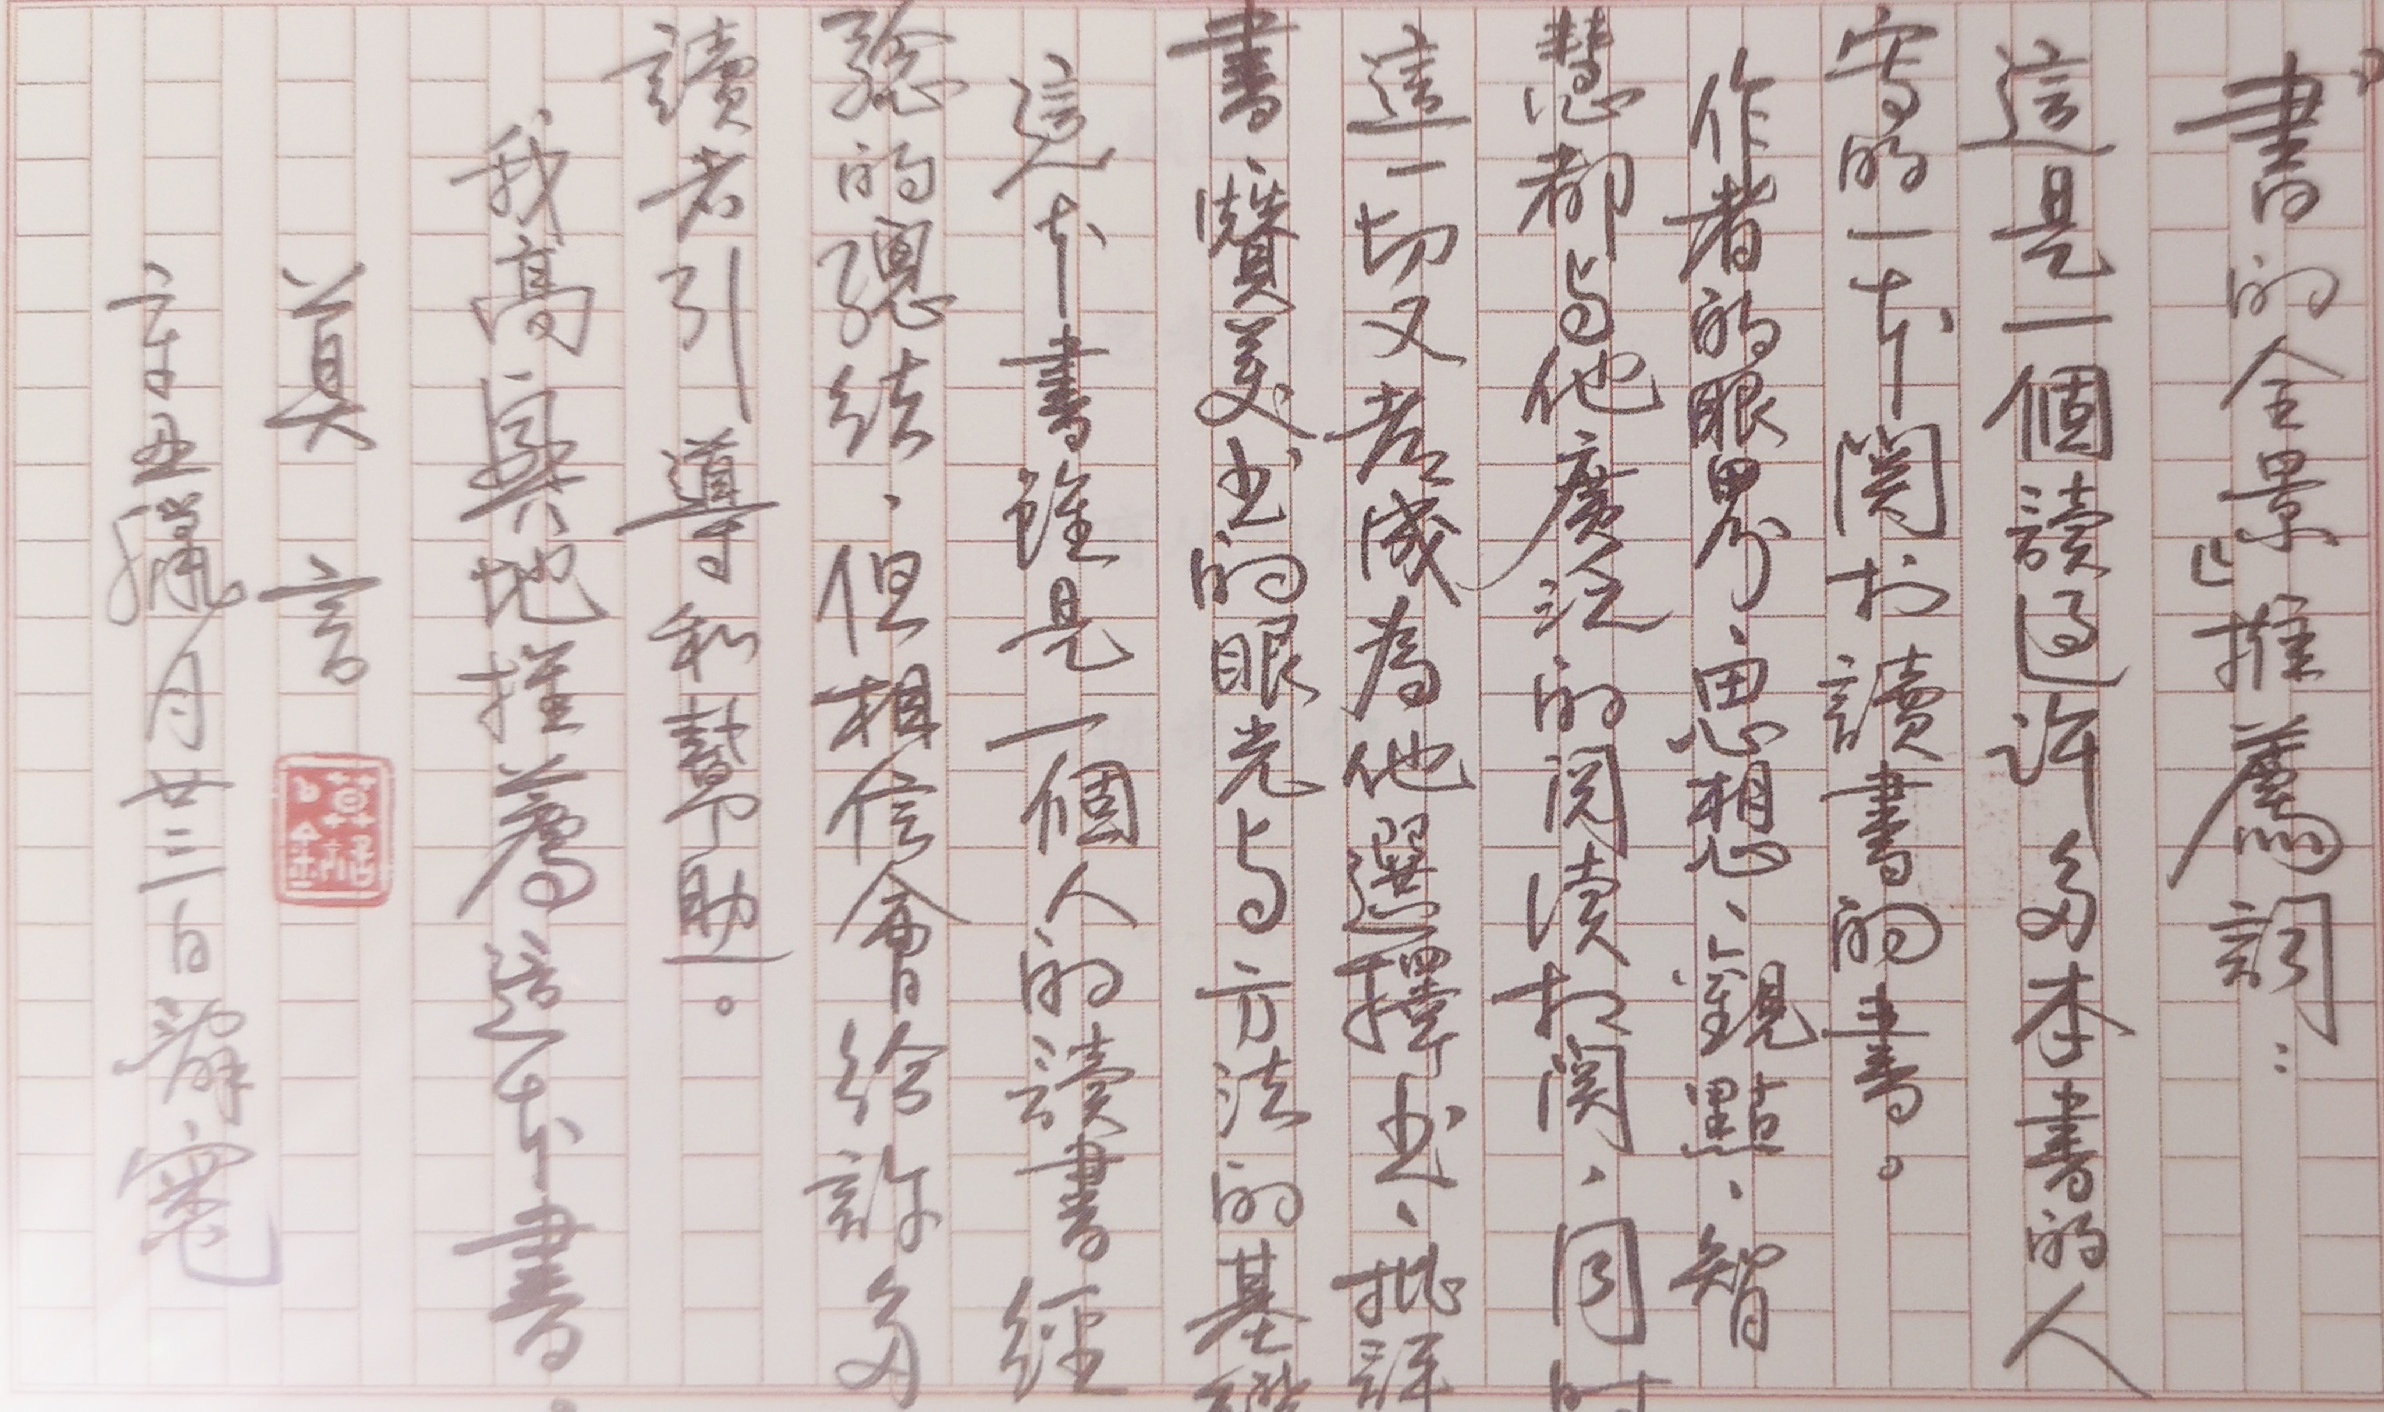 『書的全景』推薦詞：
這是一個讀過许多本書的人
寫的一本関扵讀書的書。
作者的眼界、思想、觀點、智
慧都与他廣泛的阅读相関、同时
這一切又若成為他選擇书、批评
書、讚美书的眼光与方法的基礎
這本書雖是一個人的讀書經
驗的總结、但相信會给許多
讀者引導和幫助。
我高興地推薦這本書。
莫言
辛丑臘月廿三日辭竈